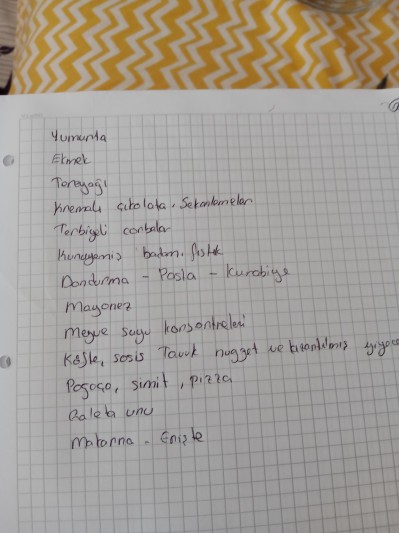 Yumurta
Ekmek
Tereyağı
Kremalı çikolata, Şekerlemeler
Terbiyeli çorbalar
Kuruyemiş badem, fıstık
Dondurma - Pasta - Kurabiye
Mayonez
Meyve suyu konsantreleri
Köfte, sosis Tavuk nugget ve kızartılmış
Poğaça, simit, pizza
Galeta unu
Makarna - Erişte